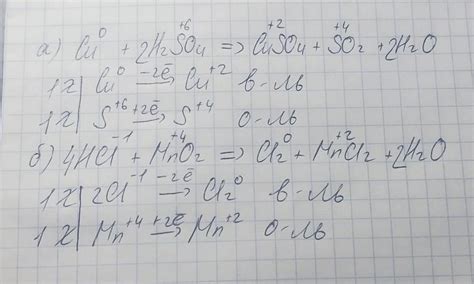 а) Cu⁰ + 2H₂S⁺⁶O₄ => Cu⁺²SO₄ + S⁺⁴O₂ + 2H₂O
1x | Cu⁰ -2ē→ Cu⁺² в-ль
1x | S⁺⁶ +2ē→ S⁺⁴ о-ль
б) 4HCl⁻¹ + Mn⁺⁴O₂ => Cl₂⁰ + Mn⁺²Cl₂ + 2H₂O
1x | 2Cl⁻¹ -2ē→ Cl₂⁰ в-ль
1x | Mn⁺⁴ +2ē→ Mn⁺² о-ль